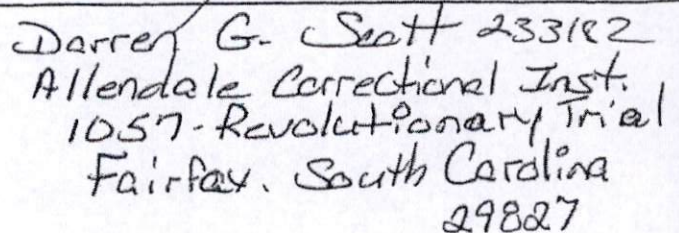 Darren G. Scott 233182
Allendale Correctional Inst.
1057-Revolutionary Trial
Fairfax. South Carolina
29827